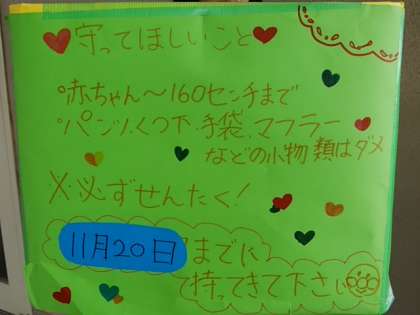 守ってほしいこと
赤ちゃん〜160センチまで
パンツ.くつ下.手袋.マフラー
などの小物類はダメ
※必ずせんたく!
11月20日までに
持ってきて下さい